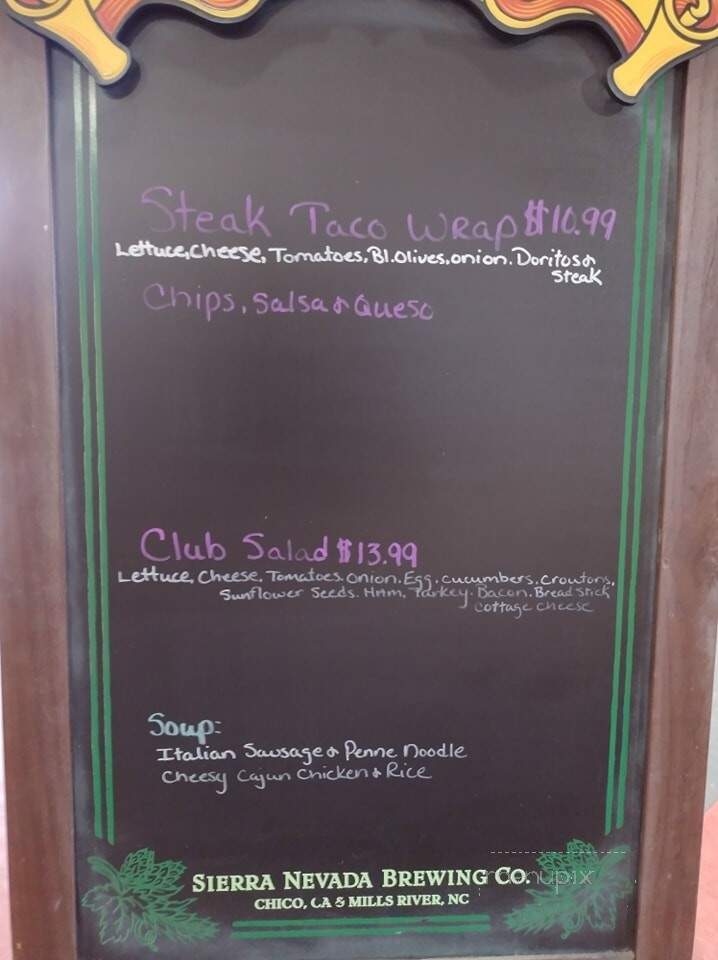 Steak Taco Wrap $10.99
Lettuce, Cheese, Tomatoes, Bl. Olives, onion. Doritos &
Steak
Chips, Salsa & Queso
Club Salad $13.99
Lettuce, Cheese. Tomatoes. Onion. Egg. cucumbers. croutons.
Sunflower Seeds. Ham. Turkey. Bacon. Bread Stick
Cottage Cheese
Soup:
Italian Sausage & Penne Noodle
Cheesy Cajun Chicken & Rice
SIERRA NEVADA BREWING CO.
CHICO, CA & MILLS RIVER, NC
menupix